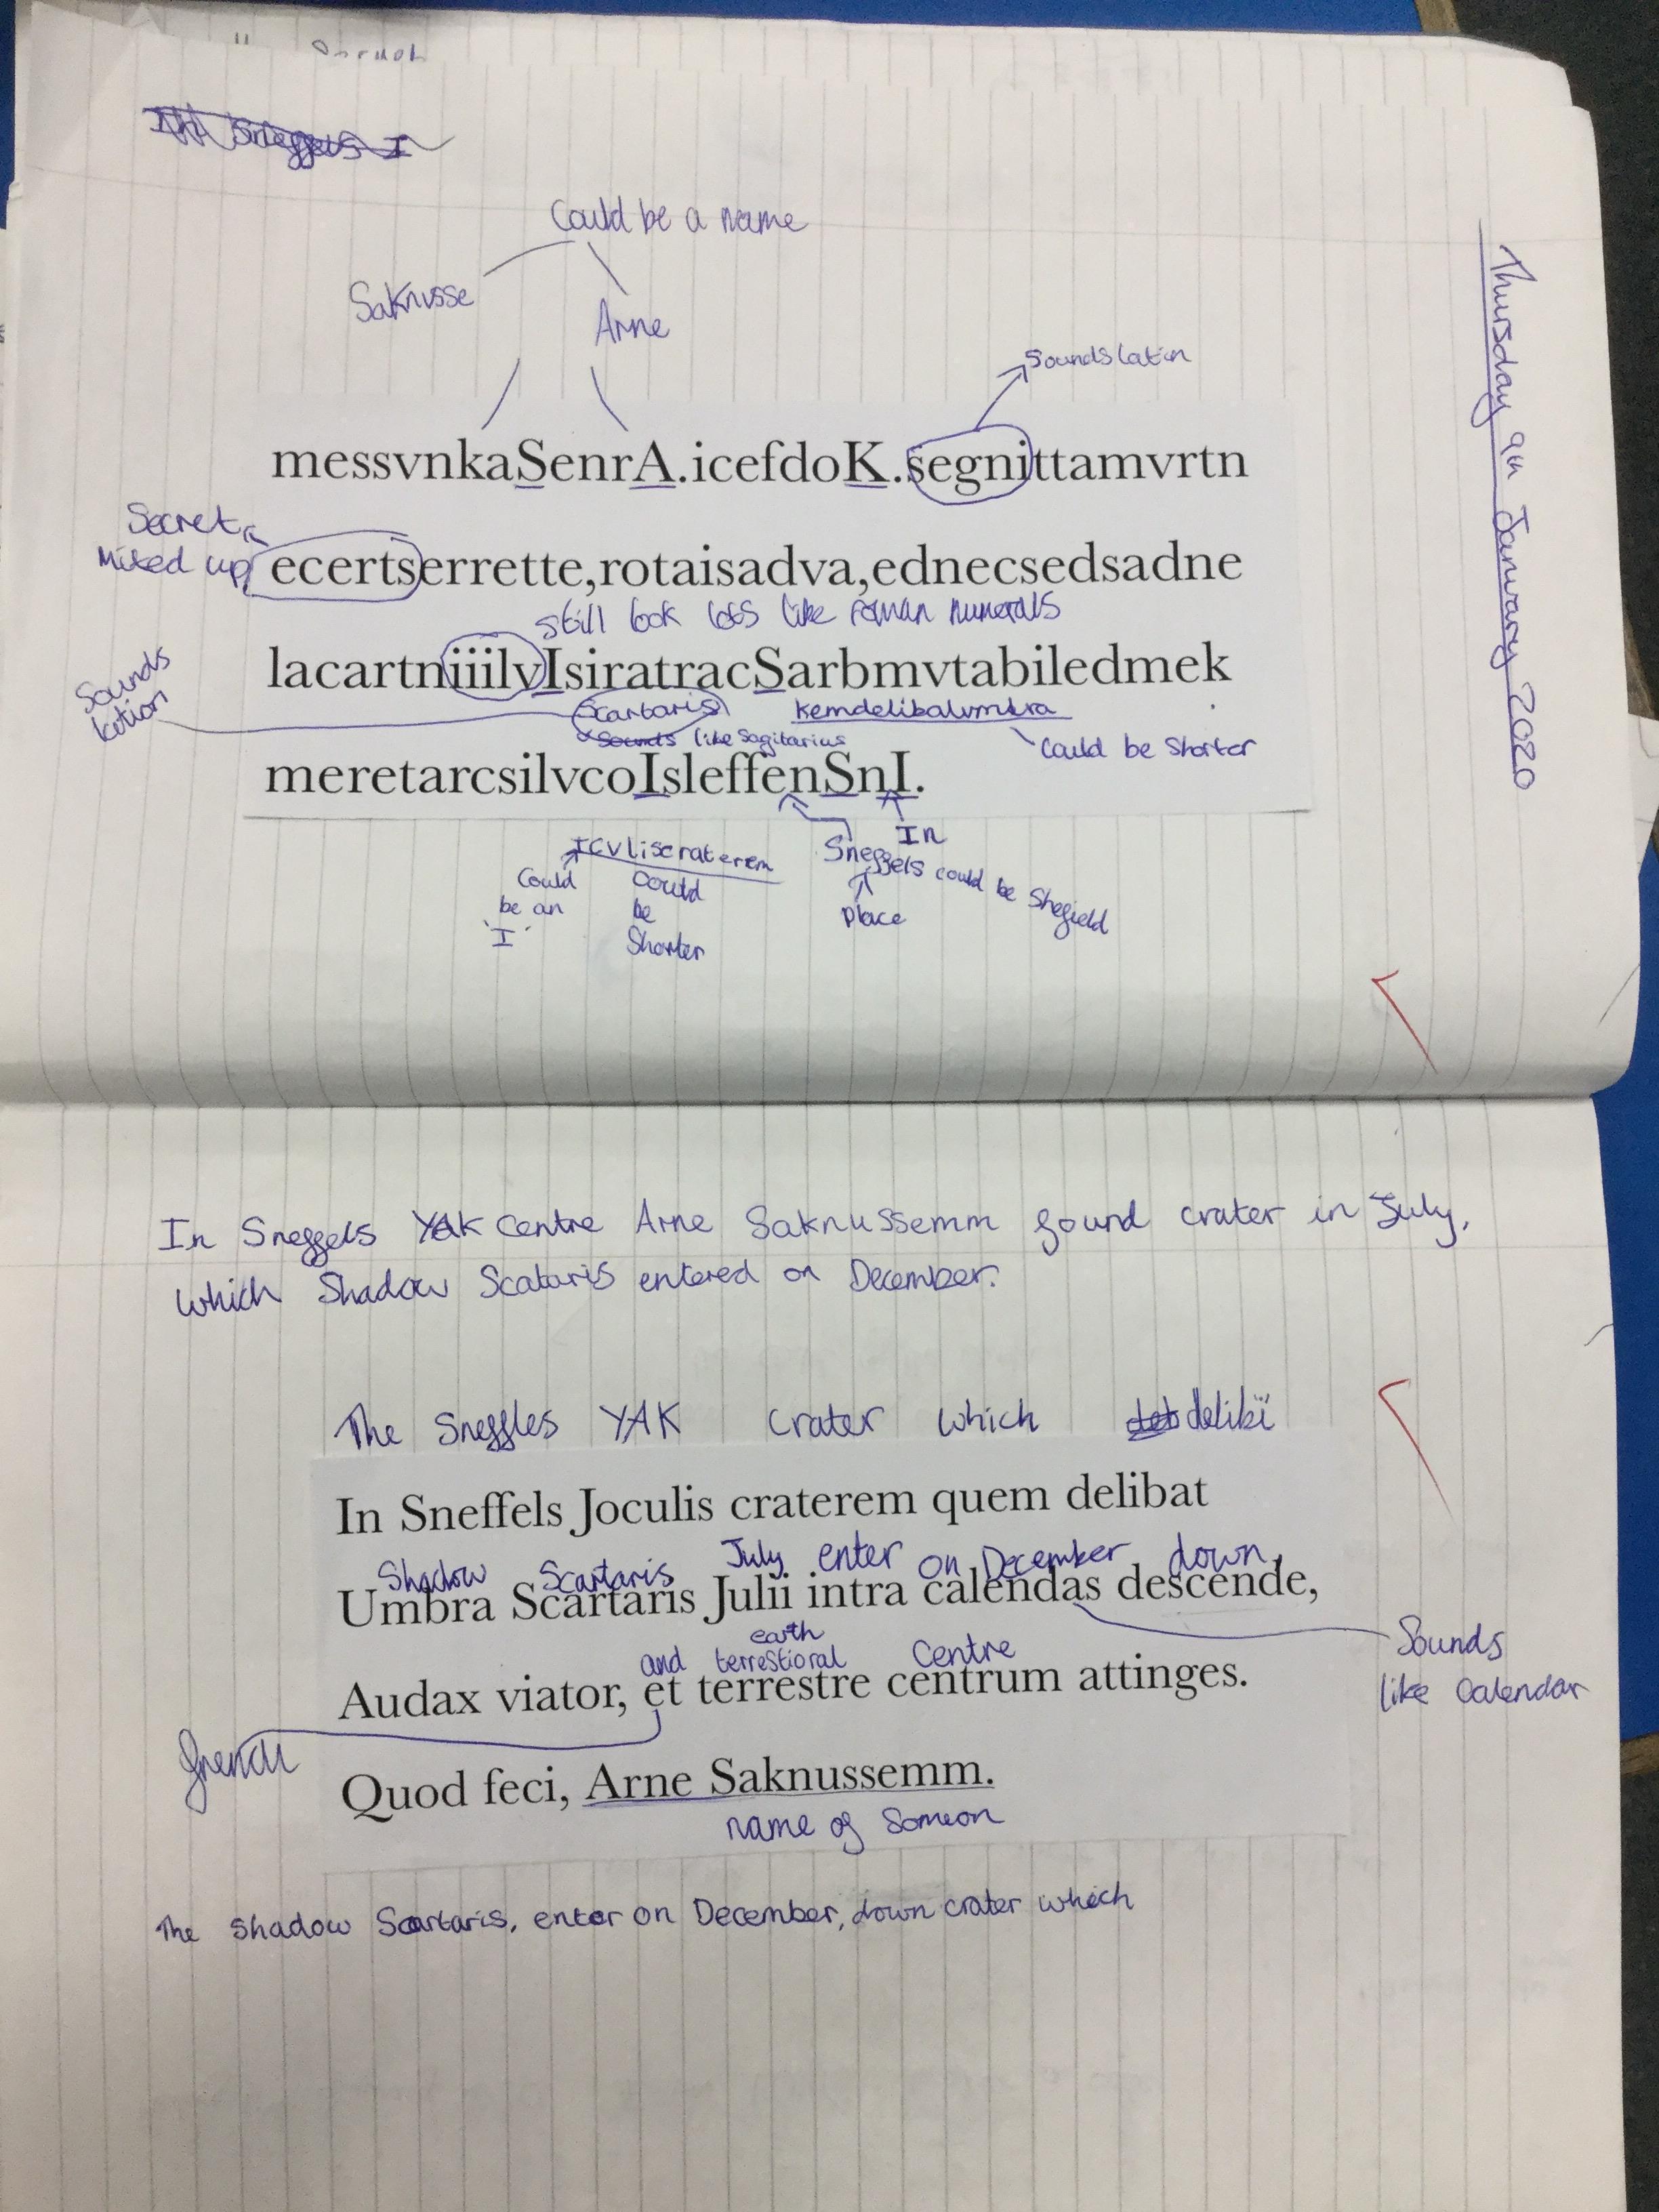 Thursday 9th January 2020
Could be a name
Saknusse
Arne
Sounds latin
messvnkaSenrA.icefdoK.segnittamvrtn
Secret
Mixed up
ecertserrette,rotaisadva,ednecsedsadne
still look lots like roman numerals
lacartniiilvIsiratracSarbmvtabiledmek
Sounds
Scartaris
kemdelibalvmbra
Sounds like Sagitarius
Could be Shorter
meretarcsilvcoIsleffenSnI.
In
Icvliscraterem
Sneffels could be Shefield
Could be an 'I'
Could be Shorter
Place
In Sneffels YAK centre Arne Saknussemm found crater in July,
which Shadow Scataris entered on December.
The Sneffles YAK crater which
In Sneffels Joculis craterem quem delibat
Shadow Scartaris July enter on December down
Umbra Scartaris Julii intra calendas descende,
Sounds
like Calendar
earth
and terrestioral Centre
Audax viator, et terrestre centrum attinges.
french
Quod feci, Arne Saknussemm.
name of Someon
The Shadow Scartaris, enter on December, down crater which